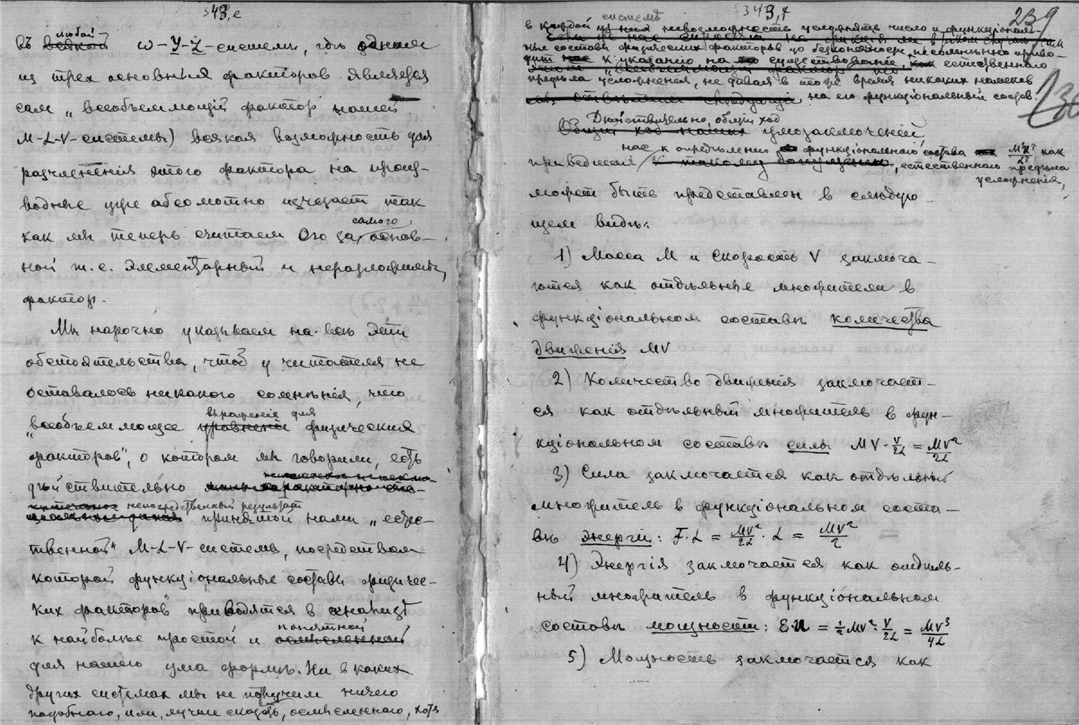 343,е
любой
въ всякой ω-У-Z-системѣ, гдѣ однимъ
из трех основныя факторов является
сам „всеобъемлющій фактор нашей
M-L-V-системы) всякая возможность для
разчлененія этого фактора на произ-
водные уже абсолютно изчезает так
самого
как мы теперь считаем его за основ-
ной т.е. элементарный и неразложимый
фактор.
Мы нарочно указываем на всѣ эти
обстоятельства, чтоб у читателя не
оставалось никакого сомнѣнія, что
выраженіе для
„всеобъемлющее уравненіе физических
факторов", о котором мы говорили, есть
дѣйствительно
непосредственный результат
принятой нами „естес-
твенной" M-L-V-системы, посредством
которой функціональные составы физичес-
ких факторов приводятся в анализѣ
понятной
к наиболѣе простой и осмысленной
для нашего ума формѣ. Ни в каких
других системах мы не получим ничего
подобнаго, или, лучше сказать, осмысленнаго, хотя
343,f
239
системѣ
в каждой из них невозможность усложнять число и функціональ-
ные составы физических факторов до безконечности, несомнѣнно приво-
дит к указанію на существованіе естественнаго
предѣла усложненія, не давая в то же время никаких намеков
на его функціональный состав.
Дѣйствительно, общій ход
Общій ход наших умозаключеній
нас к опредѣленію функціональнаго состава как
приведшій к такому допущенію, естественнаго предѣла
усложненія,
может быть представлен в слѣдую-
щем видѣ:
1) Масса M и Скорость V заключа-
ются как отдѣльные множители в
функціональном составѣ количества
движенія MV
2) Количество движенія заключает-
ся как отдѣльный множитель в фун-
кціональном составѣ силы MV·V/2L = MV²/2L
3) Сила заключается как отдѣльный
множитель в функціональном соста-
вѣ энергіи: F·L = MV²/2L · L = MV²/2
4) Энергія заключается как отдѣль-
ный множитель в функціональном
составѣ мощности: En = ½MV²·V/2L = MV³/4L
5) Мощность заключается как